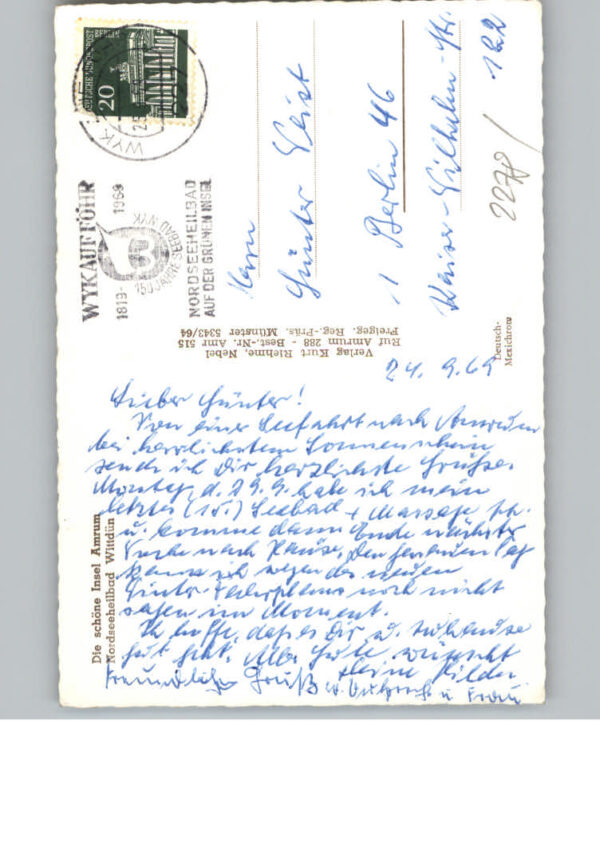 DEUTSCHE BUNDESPOST
BERLIN
20
WYK
WYK AUF FÖHR
1819-1969
150 JAHRE SEEBAD WYK
NORDSEEHEILBAD
AUF DER GRÜNEN INSEL
Herrn
Günter Geist
1 Berlin 46
Kaiser-Wilhelm-Str.
122
2278/
Verlag Kurt Riehme, Nebel
Ruf Amrum 288 - Best.-Nr. Amr 515
Freigeg. Reg.-Präs. Münster 5343/64
Deutsch-
Mexichrom
24. 9. 69
Lieber Günter!
Von einer Seefahrt nach Amrum
bei herrlichstem Sonnenschein
sende ich Dir herzlichste Grüße.
Montag, d. 29. 9. habe ich mein
letztes (15.) Seebad + Massage
u. komme dann Ende nächster
Woche nach Hause. Den genauen Tag
kann ich wegen des neuen
Winter-Fahrplans noch nicht
sagen im Moment.
Ich hoffe, daß es Dir u. zuhause
gut geht. Alles Gute wünscht
Deine Hilde
Freundlichen Gruß u. Frau
Die schöne Insel Amrum
Nordseeheilbad Wittdün